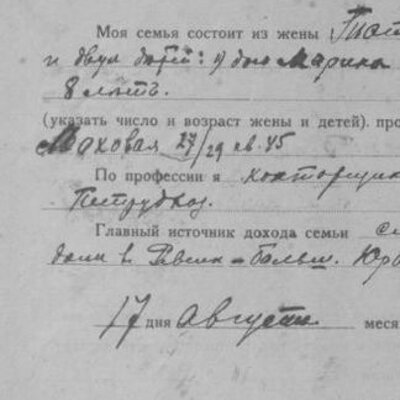 Моя семья состоит из жены
и двух детей: 1) дочь Марина
8 летъ.
(указать число и возраст жены и детей). про
Моховая 27/29 кв. 45
По профессии я конторщик
Петрудкоз.
Главный источник дохода семьи
в Больш.
17 дня Августа меся